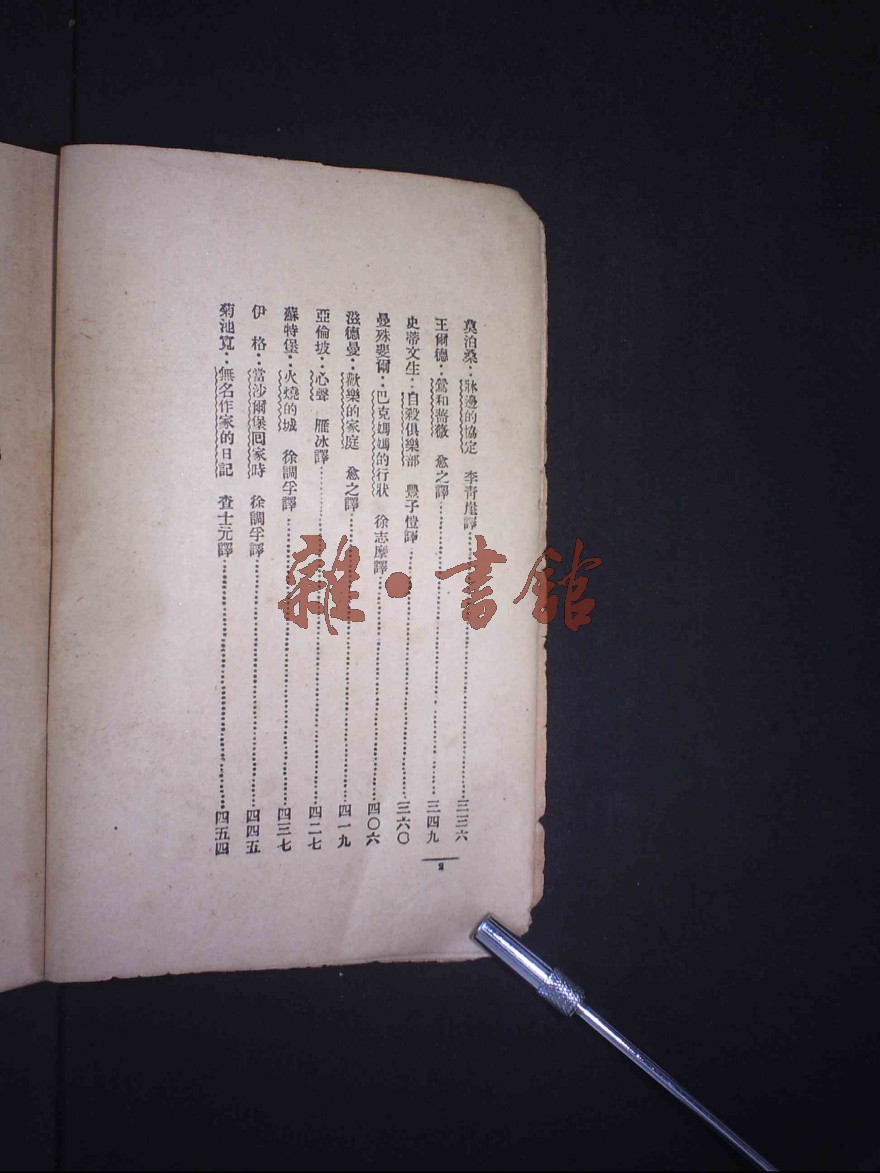 莫泊桑：牀邊的協定　李青崖譯……三三六
王爾德：鶯和薔薇　愈之譯……三四九
史蒂文生：自殺俱樂部　豐子愷譯……三六〇
曼殊斐爾：巴克媽媽的行狀　徐志摩譯……四〇六
滋德曼：歡樂的家庭　愈之譯……四一九
亞倫坡：心聲　雁冰譯……四二七
蘇特堡：火燒的城　徐調孚譯……四三七
伊　格：當沙爾堡回家時　徐調孚譯……四四五
菊池寬：無名作家的日記　查士元譯……四五四
2
雜·書館